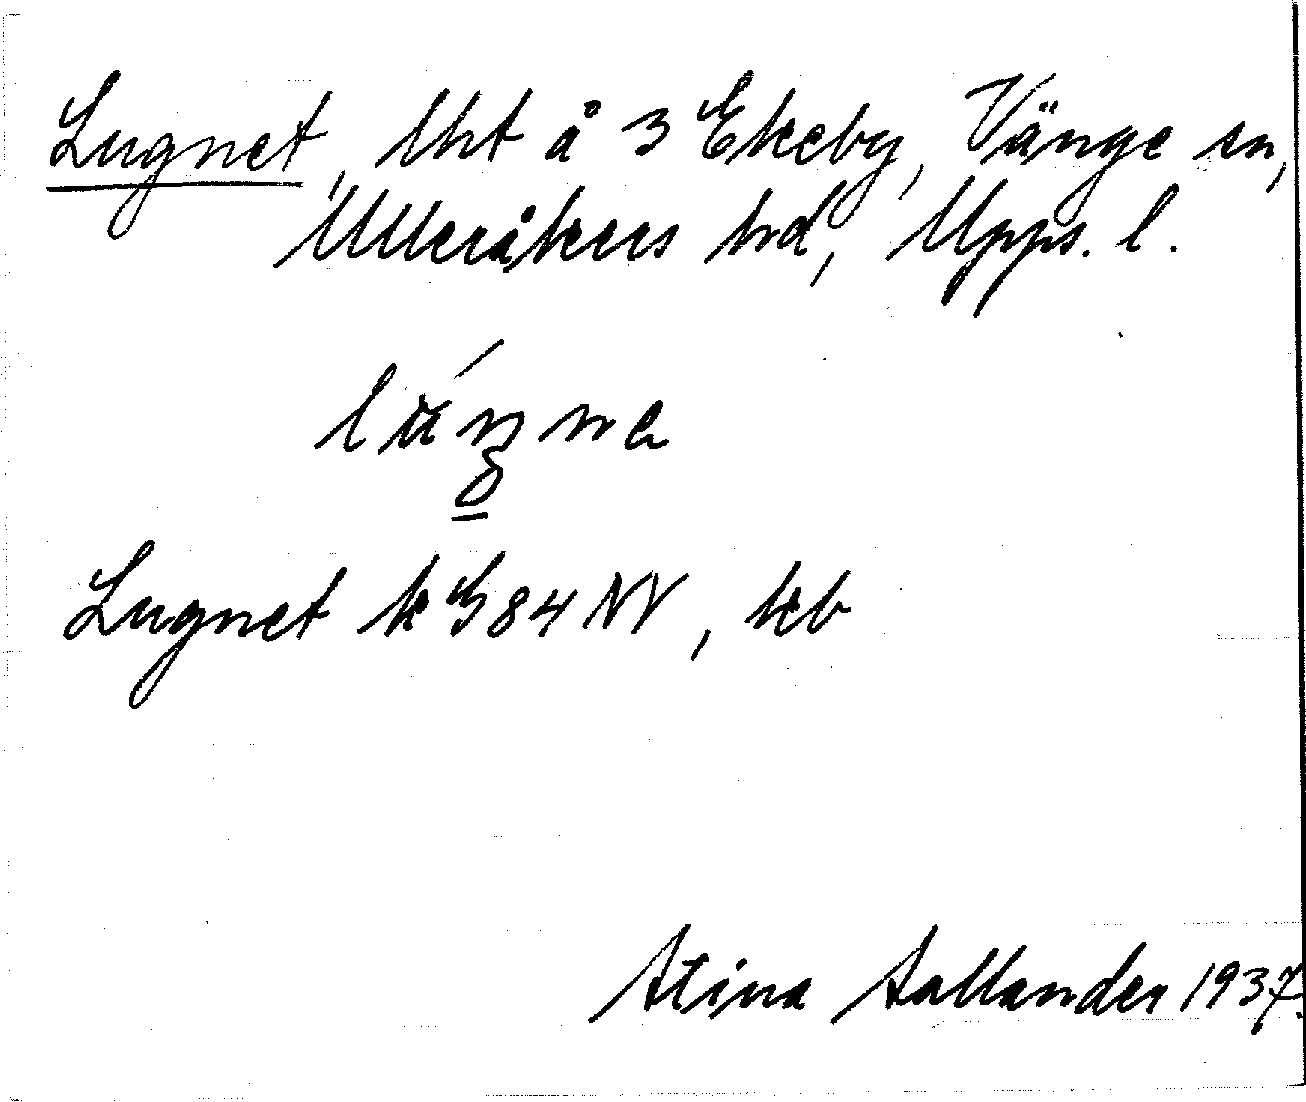 Lugnet, lht å 3 Ekeby, Vänge sn,
Ulleråkers hd, Upps. l.
Lugnet k G 84 NV, keb
Stina Sallander 1937.